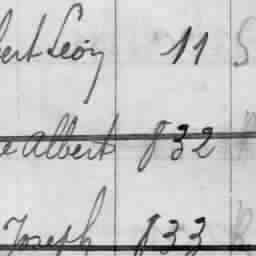 bert Léon 11 S
e Albert 832
Joseph 833